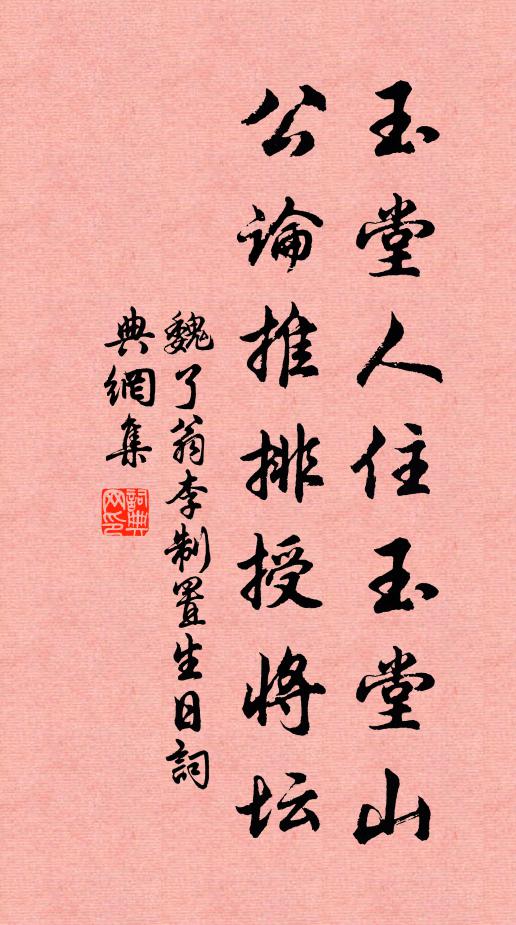 玉堂人住玉堂山
公論推排授將坛
魏了翁李制置生日詞
典網集
詞典
网印